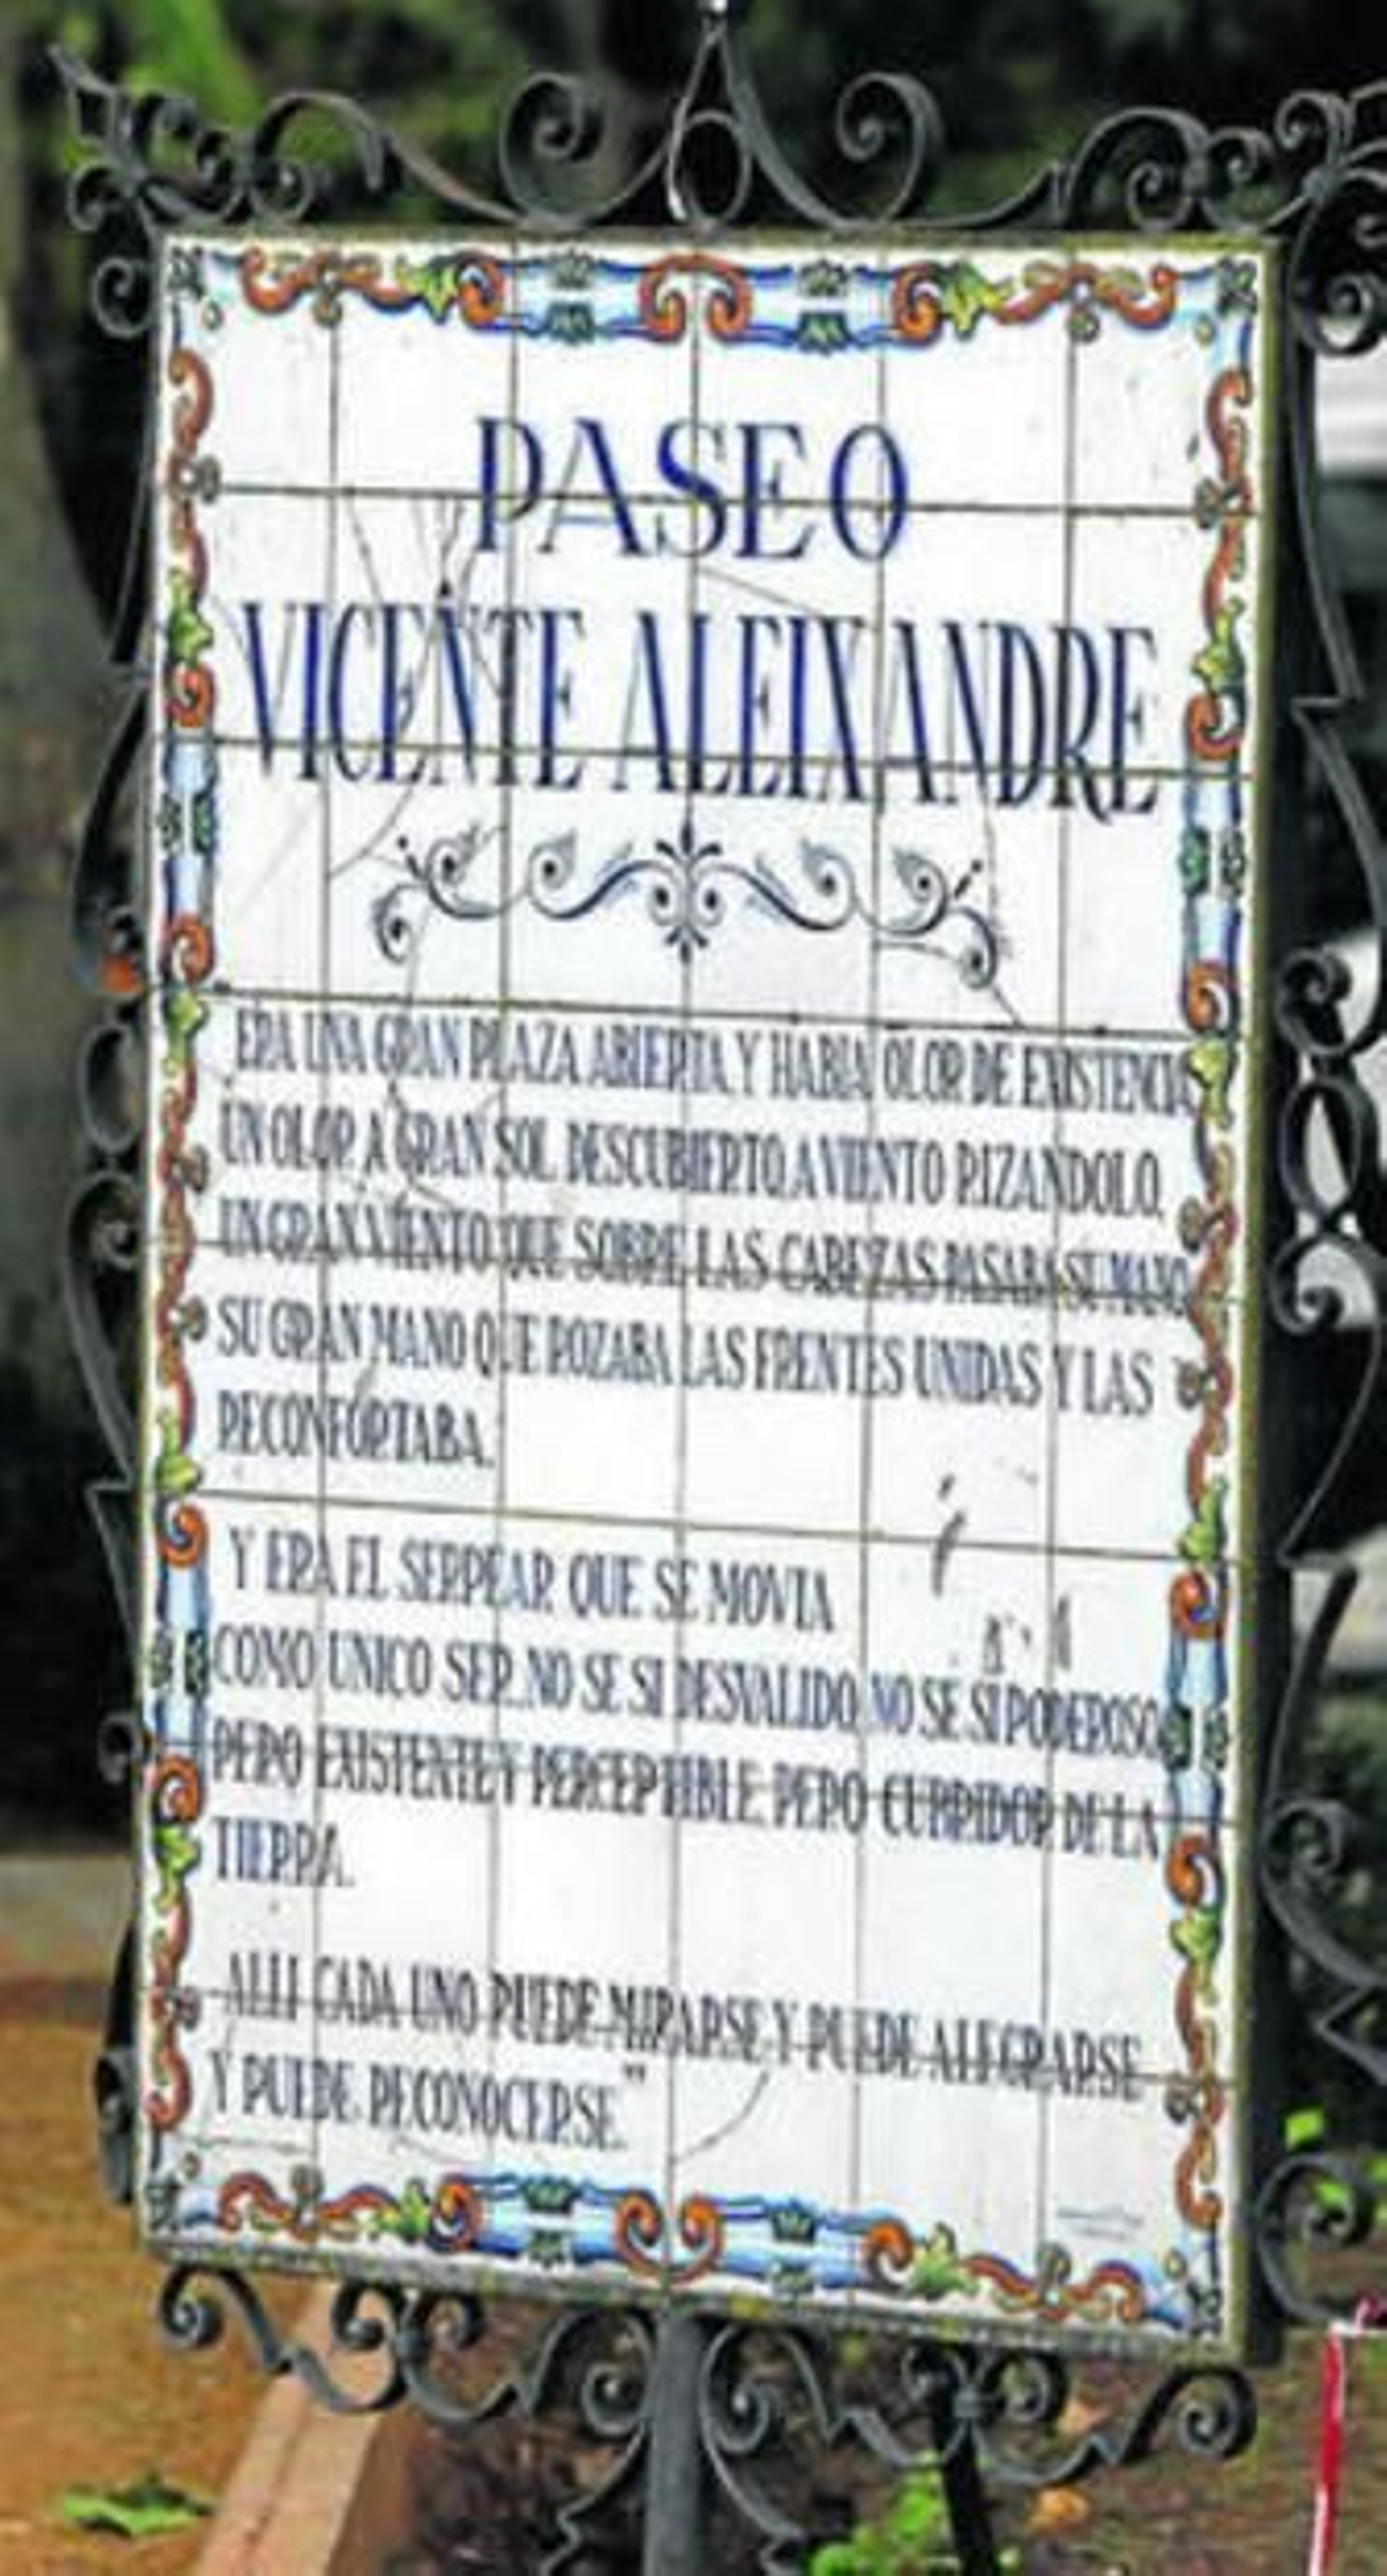 PASEO
VICENTE ALEIXANDRE
"ERA UNA GRAN PLAZA ABIERTA Y HABIA OLOR DE EXISTENCIA
UN OLOR A GRAN SOL DESCUBIERTO, A VIENTO RIZANDOLO,
UN GRAN VIENTO QUE SOBRE LAS CABEZAS PASABA SU MANO,
SU GRAN MANO QUE ROZABA LAS FRENTES UNIDAS Y LAS
RECONFORTABA.
Y ERA EL SERPEAR QUE SE MOVIA
COMO UNICO SER, NO SE SI DESVALIDO, NO SE SI PODEROSO,
PERO EXISTENTE Y PERCEPTIBLE, PERO CUBRIDOR DE LA
TIERRA.
ALLI CADA UNO PUEDE MIRARSE Y PUEDE ALEGRARSE
Y PUEDE RECONOCERSE."